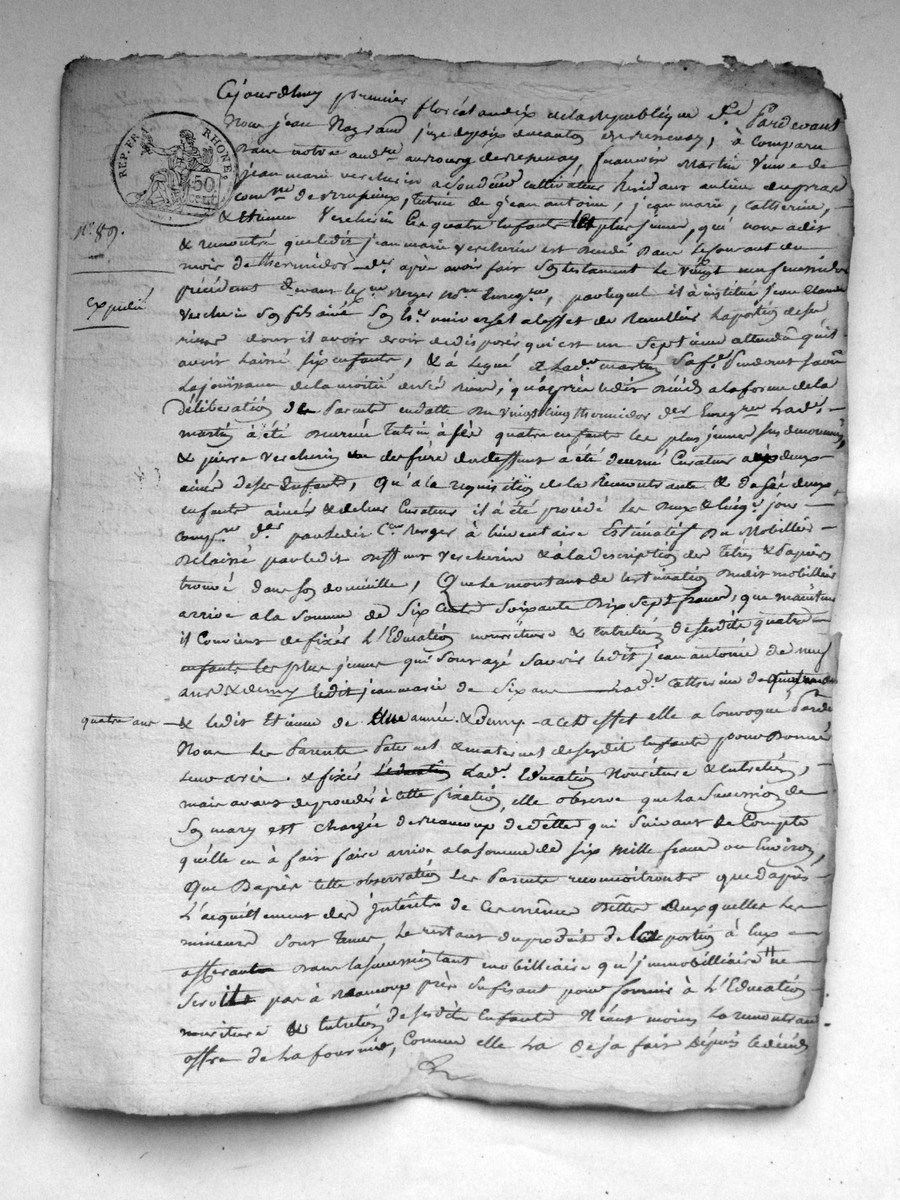 Cejourdhuy premier floréal an dix de la république f.se Pardevant
Nous jean Nayrand juge de paix du canton de ressenay, à comparu
dans notre aud.re au bourg de ressenay, francoise Martin Veuve de
jean marie vercherin a son décès cultivateur Residant au lieu du pras
com.ne de tutrice de jean antoine, jean marie, catherine,
& Etienne Vercherin Ses quatre Enfants les plus jeunes, qui nous a dit
& remontré que ledit jean marie Vercherin est décédé dans le courant du
mois de thermidor d.er après avoir fait son testament le vingt neuf messidor
précédent devant le C.en verger No.re Enregistré, par lequel il à institué jean Claude
Vercherin Son fils ainé Son h.er universel a leffet de Recueillir la portion de ses
biens dont il avoit droit de disposer qui est un Septième attendû qu'il
avoit laissé six enfants, & à légué à Lad.e martin sa f.e pendant sa vie
La jouissance de la moitié de ses biens, qu'après ledit décès a la forme de la
délibération de Parents en datte du vingt cinq thermidor d.er Enreg.rée Lad.e
martin à été nommée tutrice à ses quatre enfants les plus jeunes sus dénommés,
& pierre Vercherin frère du deffunt à été nommé Curateur aux deux
ainés desd. Enfants, Qu'a la requisition de la Remontrante & desdits deux
enfants ainés & de leur Curateur il à été procédé les deux & cinq jours
comp.res d.er par ledit C.en verger à linventaire Estimatif du Mobilier
Délaissé par ledit deffunt Vercherin & à la description des titres & papiers
trouvés dans son domicille, Que le montant de lestimation dudit mobilier
arrive a la Somme de Six Cents Soixante dix Sept francs, que maintenant
il Convient de fixer L'Education nourriture & Entretien desdits quatre
enfants les plus jeunes qui sont agé Savoir ledit jean antoine de neuf
ans & demy ledit jean marie de Six ans Lad.e catherine de
quatre ans
& ledit Etienne de Une année & demy - a cet effet elle a Convoqué Par de
Nous les Parents Paternels & maternels desdits Enfants pour donner
leur avis & fixer l'éducation Lad.e Education Nouriture & entretien,
mais avant de procéder à cette fixation, elle observe que la Succession de
Son mary est chargée de beaucoup de dettes qui suivant le Compte
quelle en à fait faire arrive a la somme de six mille francs ou Environ,
Que Dapres cette observation les Parents reconnoitront que dapres
L'acquittement des jnterêts de ces mêmes dettes auxquelles les
mineurs sont tenus le restant du produit de la portion à Eux
afférante dans la succession tant mobilliaire qu'jmmobilliaire ne
seroit pas à Beaucoup près Sufisant pour fournir à L'Education
nouriture & Entretien desdits Enfants Néant moins La remontrante
offre de la fournir, Comme elle La deja fait Depuis le décès
N.o 89.
Expédié